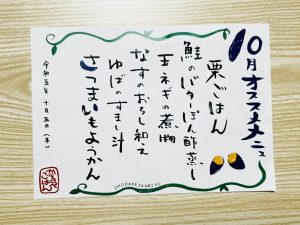 10月オススメメニュー
栗ごはん
鮭のバターぽん酢蒸し
玉ネギの煮物
なすのおろし和え
ゆばのすまし汁
さつまいもようかん
令和五年 十月五日(木)